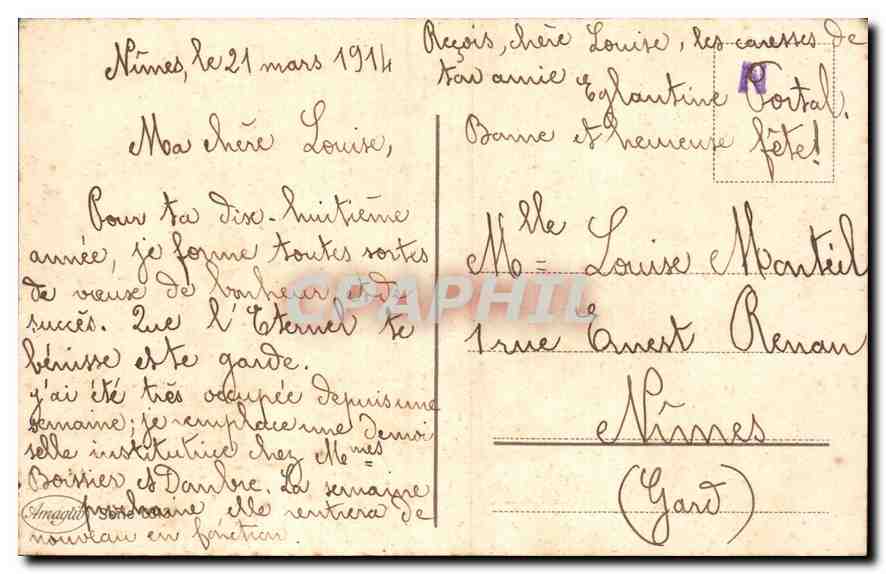 Nîmes, le 21 mars 1914
Ma chère Louise,
Pour ta dix-huitième
année, je forme toutes sortes
de vœux de bonheur et de
succès. Que l'Eternel te
bénisse et te garde.
j'ai été très occupée depuis une
semaine; je remplace une demoi
selle institutrice chez Mmes
Boissier et Dombre. La semaine
prochaine elle rentrera de
nouveau en fonction.
Reçois, chère Louise, les caresses de
ton amie Eglantine Portal.
Bonne et heureuse fête!
Mlle Louise Monteil
1 rue Ernest Renan
Nîmes
(Gard)
CPAPHIL
Amaglio Série